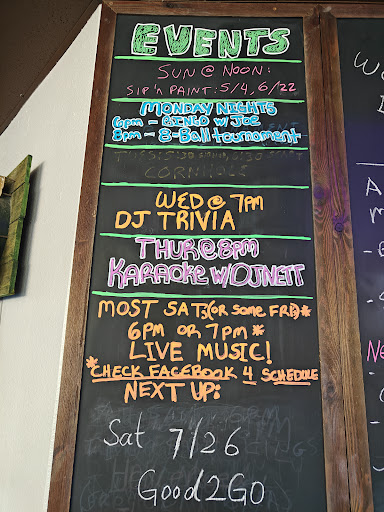 EVENTS
SUN @ NOON:
SIP 'n PAINT: 5/4, 6/22
MONDAY NIGHTS
6pm - BINGO W/ JOE
8pm - 8-Ball tournament
CORNHOLE
WED @ 7PM
DJ TRIVIA
THUR @ 8PM
KARAOKE W/ DJ NETT
MOST SATS (OR SOME FRI)*
6PM OR 7PM *
LIVE MUSIC!
*CHECK FACEBOOK 4 SCHEDULE
NEXT UP:
Sat 7/26
Good2Go